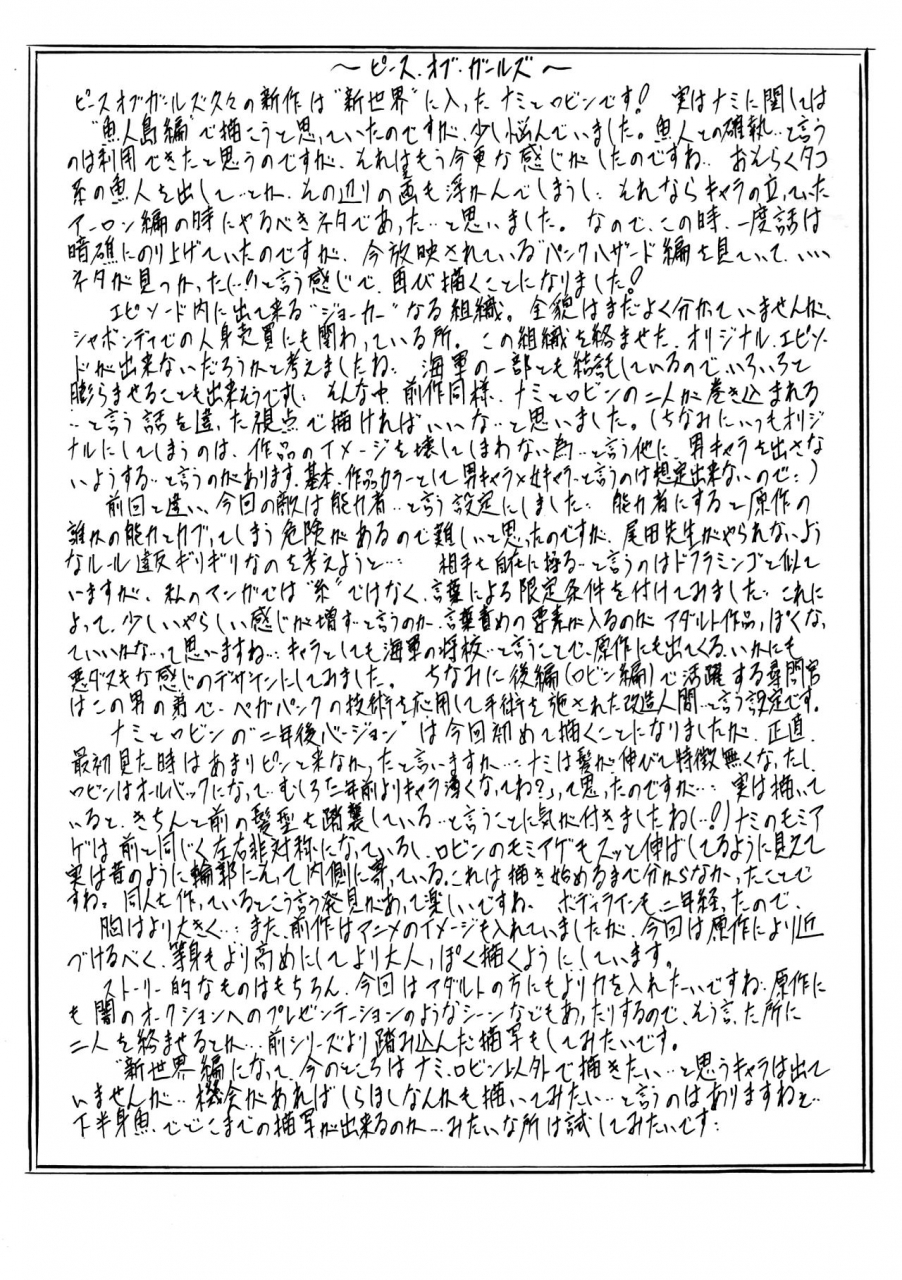 ～ピース・オブ・ガールズ～
ピースオブガールズ久々の新作は"新世界"に入ったナミとロビンです! 実はナミに関しては
"魚人島編"で描こうと思っていたのですが、少し悩んでいました。魚人との確執…と言う
のは利用できたと思うのですが、それはもう今更な感じがしたのですね… おそらくタコ
系の魚人を出して…とか、その辺りの画も浮かんでしまうし… それならキャラの立っていた
アーロン編の時にやるべきネタであった…と思いました。なので、この時、一度話は
暗礁にのり上げていたのですが、今放映されている"パンクハザード編を見ていて、いい
ネタが見つかった(…!)と言う感じで、再び描くことになりました!
エピソード内に出て来る"ジョーカー"なる組織。全貌はまだよく分かっていませんが、
シャボンディでの人身売買にも関わっている所。この組織を絡ませた、オリジナル・エピソー
ドが出来ないだろうかと考えましたね… 海軍の一部とも結託しているので、いろいろと
膨らませることも出来そうですし… そんな中、前作同様、ナミとロビンの二人が巻き込まれる
…と言う話を違った視点で描ければいいな…と思いました。(ちなみにいつもオリジ
ナルにしてしまうのは、作品のイメージを壊してしまわない為…と言う他に、男キャラを出さな
いようする…と言うのがあります。基本、作品カラーとして男キャラ×女キャラ…と言うのは想定出来ないので…)
前回と違い、今回の敵は能力者…と言う設定にしました… 能力者にすると原作の
誰かの能力とカブってしまう危険があるので難しいと思ったのですが、尾田先生がやられないよう
なルール違反ギリギリなのを考えようと… 相手を自在に操る…と言うのはドフラミンゴと似て
いますが、私のマンガでは"糸"ではなく、言葉による限定条件を付けてみました… これに
よって、少しいやらしい感じが増す…と言うのか、言葉責めの要素が入るのが、アダルト作品っぽくなっ
ていいかな…って思いますね… キャラとしても海軍の将校…と言うことで、原作にも出てくる、いかにも
悪ダスキな感じのデザインにしてみました。 ちなみに後編(ロビン編)で活躍する尋問官
はこの男の弟で、ベガパンクの技術を応用して手術を施された改造人間…と言う設定です。
ナミとロビンの"二年後バージョン"は今回初めて描くことになりましたが、正直、
最初見た時はあまりピンと来なかったと言いますか… ナミは髪が伸びて特徴無くなったし、
ロビンはオールバックになって…むしろ「二年前よりキャラ薄くなってね?」って思ったのですが… 実は描いて
いると、きちんと前の髪型を踏襲している…と言うことに気が付きましたね(…!)ナミのモミア
ゲは前と同じく左右非対称になっているし、ロビンのモミアゲもスッと伸ばしてるように見えて
実は昔のように輪郭にそって内側に寄っている。これは描き始めるまで分からなかったことで
すね。同人を作っているとこう言う発見があって楽しいですね… ボディラインも二年経ったので、
胸はより大きく… また、前作はアニメのイメージも入れていましたが、今回は原作により近
づけるべく、等身もより高めにしてより大人っぽく描くようにしています。
ストーリー的なものはもちろん、今回はアダルトの方にもより力を入れたーいですね… 原作に
も闇のオークションへのプレゼンテーションのようなシーンなどもあったりするので、そう言った所に
二人を絡ませるとか… 前シリーズより踏み込んだ描写もしてみたいです。
"新世界編"になって、今のところはナミ、ロビン以外で描きたい…と思うキャラは出て
いませんが… 機会があればしらほしなんかも描いてみたい…と言うのはありますねぇ…
下半身魚、でどこまでの描写が出来るのか…みたいな所は試してみたいです…